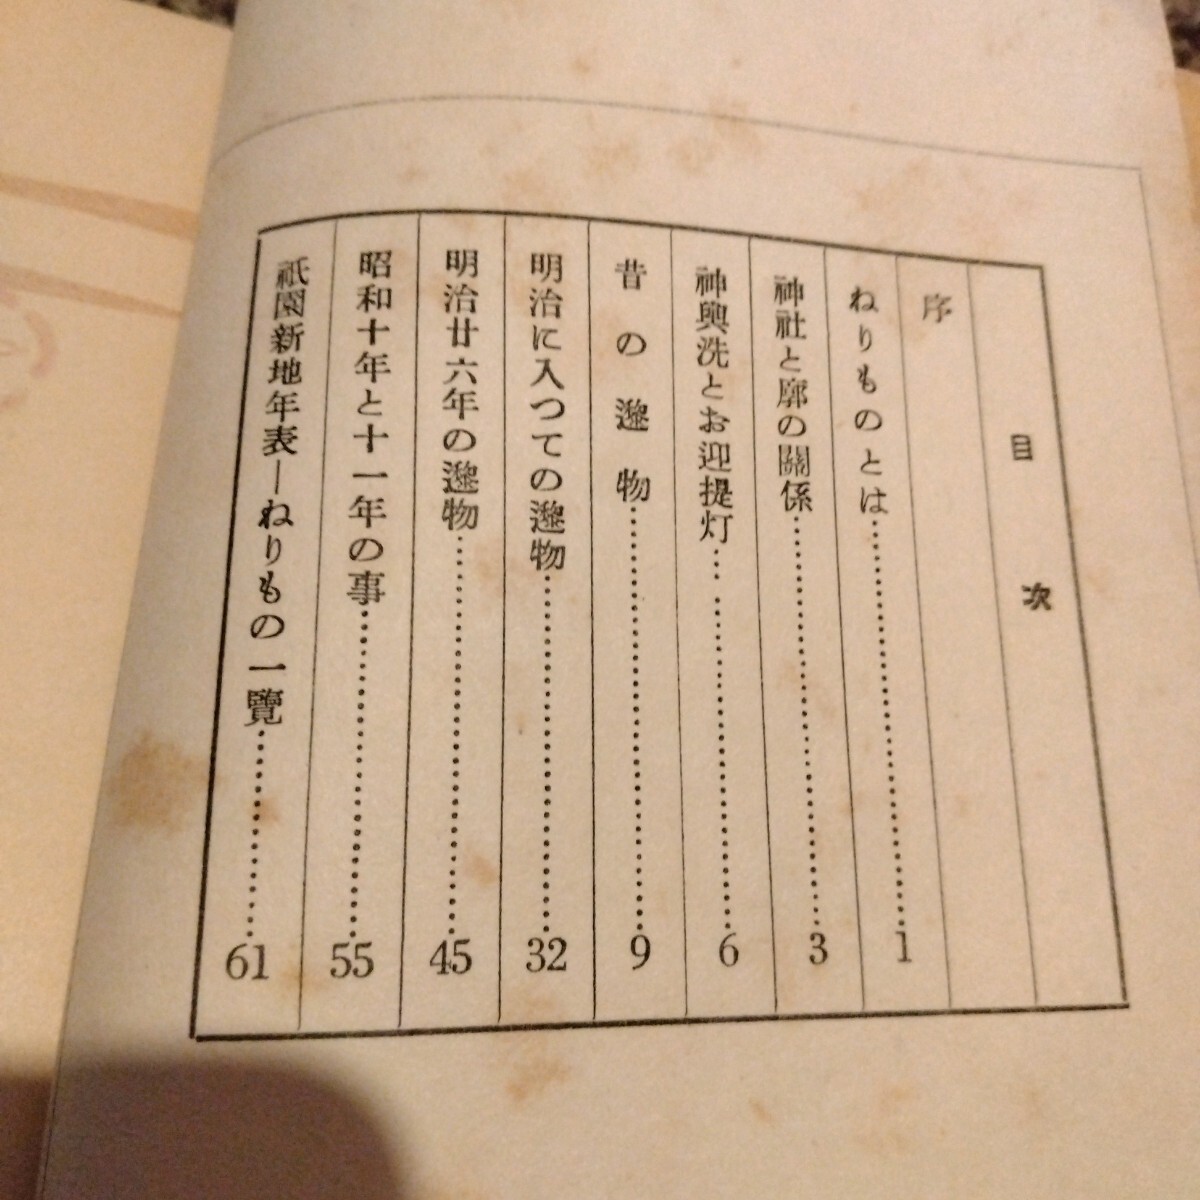 目次
序
ねりものとは……………………1
神社と廓の關係……………………3
神輿洗とお迎提灯……………………6
昔の邌物……………………9
明治に入つての邌物……………………32
明治廿六年の邌物……………………45
昭和十年と十一年の事……………………55
祇園新地年表―ねりもの一覽……………………61